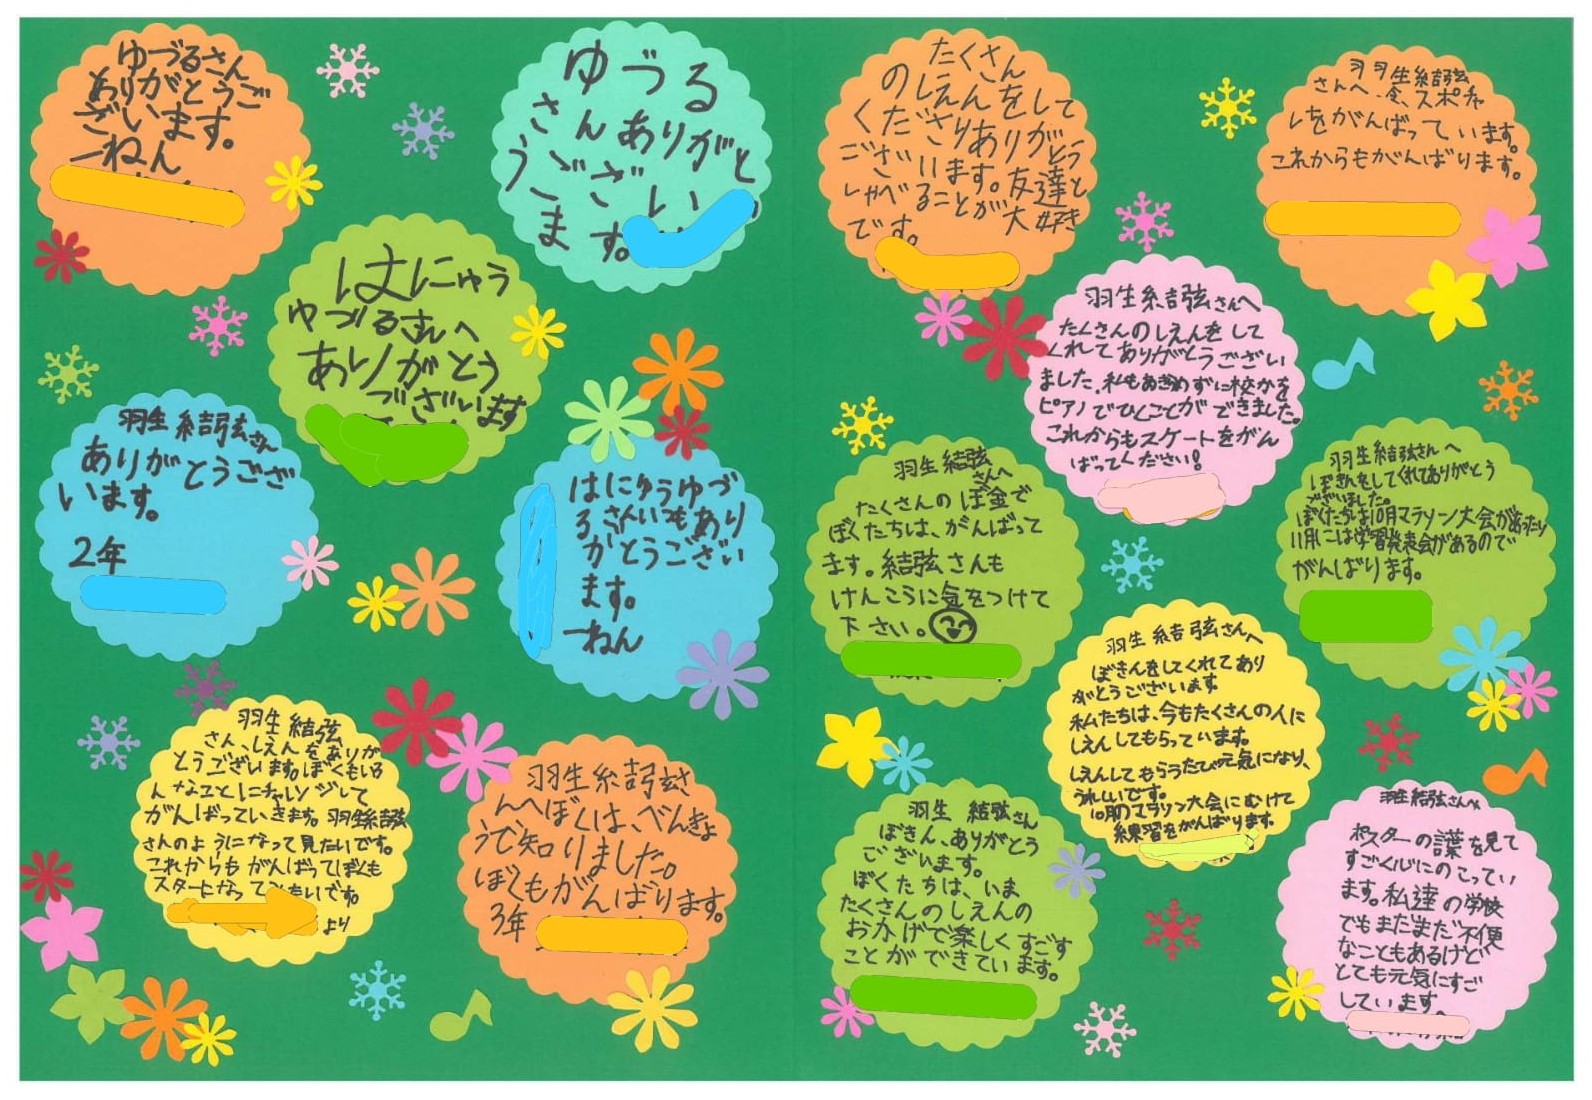 ゆづるさん
ありがとうご
ざいます。
一ねん
ゆづる
さんありがと
うござい
ます。
はにゅう
ゆづるさんへ
ありがとう
ございます
羽生結弦さん
ありがとうござ
います。
2年
はにゅうゆづ
るさんいつもあり
がとうござい
ます。
一ねん
羽生結弦
さん、しえんをありが
とうございます。ぼくもいろ
んなことにチャレンジして
がんばっていきます。羽生結弦
さんのようになって見たいです。
これからもがんばってぼくも
より
羽生結弦さ
んへぼくは、べんきょ
うで知りました。
ぼくもがんばります。
3年
たくさん
のしえんをして
くださりありがとう
ございます。友達と
しゃべることが大好き
です。
羽生結弦
さんへ、今、スポチャ
レをがんばっています。
これからもがんばります。
羽生結弦さんへ
たくさんのしえんをして
くれてありがとうござい
ました。私もあきらめずに校かを
ピアノでひくことができました。
これからもスケートをがん
ばってください!
羽生結弦
さんへ
たくさんのぼ金で
ぼくたちは、がんばって
ます。結弦さんも
けんこうに気をつけて
下さい。
羽生結弦さんへ
ぼきんをしてくれてありがとう
ございました。
ぼくたちは10月マラソン大会があったり
11月には学習発表会があるので
がんばります。
羽生結弦さんへ
ぼきんをしてくれてあり
がとうございます。
私たちは、今もたくさんの人に
しえんしてもらっています。
しえんしてもらうたび元気になり、
うれしいです。
10月のマラソン大会にむけて
練習をがんばります。
羽生 結弦さん
ぼきん、ありがとう
ございます。
ぼくたちは、いま
たくさんのしえんの
おかげで楽しくすごす
ことができています。
羽生結弦さんへ
ポスターの言葉を見て
すごく心にのこってい
ます。私達の学校
でもまだまだ不便
なこともあるけど
とても元気にすご
しています。